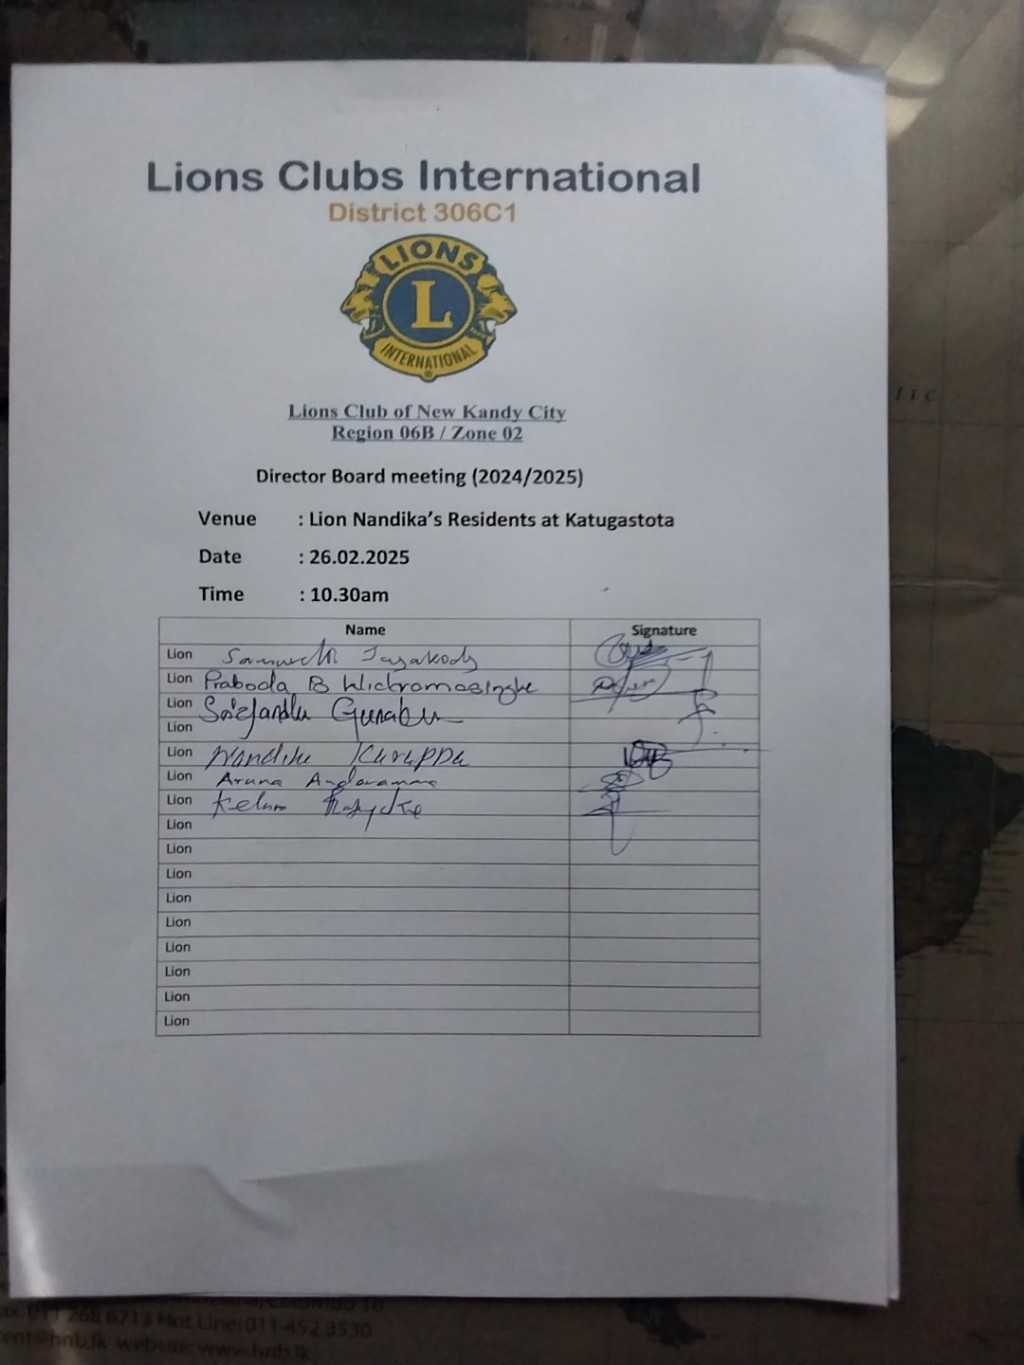 Lions Clubs International
District 306C1
LIONS
L
INTERNATIONAL
Lions Club of New Kandy City
Region 06B / Zone 02
Director Board meeting (2024/2025)
Venue : Lion Nandika's Residents at Katugastota
Date : 26.02.2025
Time : 10.30am
Name Signature
Lion Jayakody
Lion Praboda B Wickramasinghe
Lion
Lion
Lion Nandika Kuruppu
Lion Aruna
Lion Kelum
Lion
Lion
Lion
Lion
Lion
Lion
Lion
Lion
Lion
011 266 6713 Hot Line: 011 452 3530
hnb.lk website: www.hnb.lk